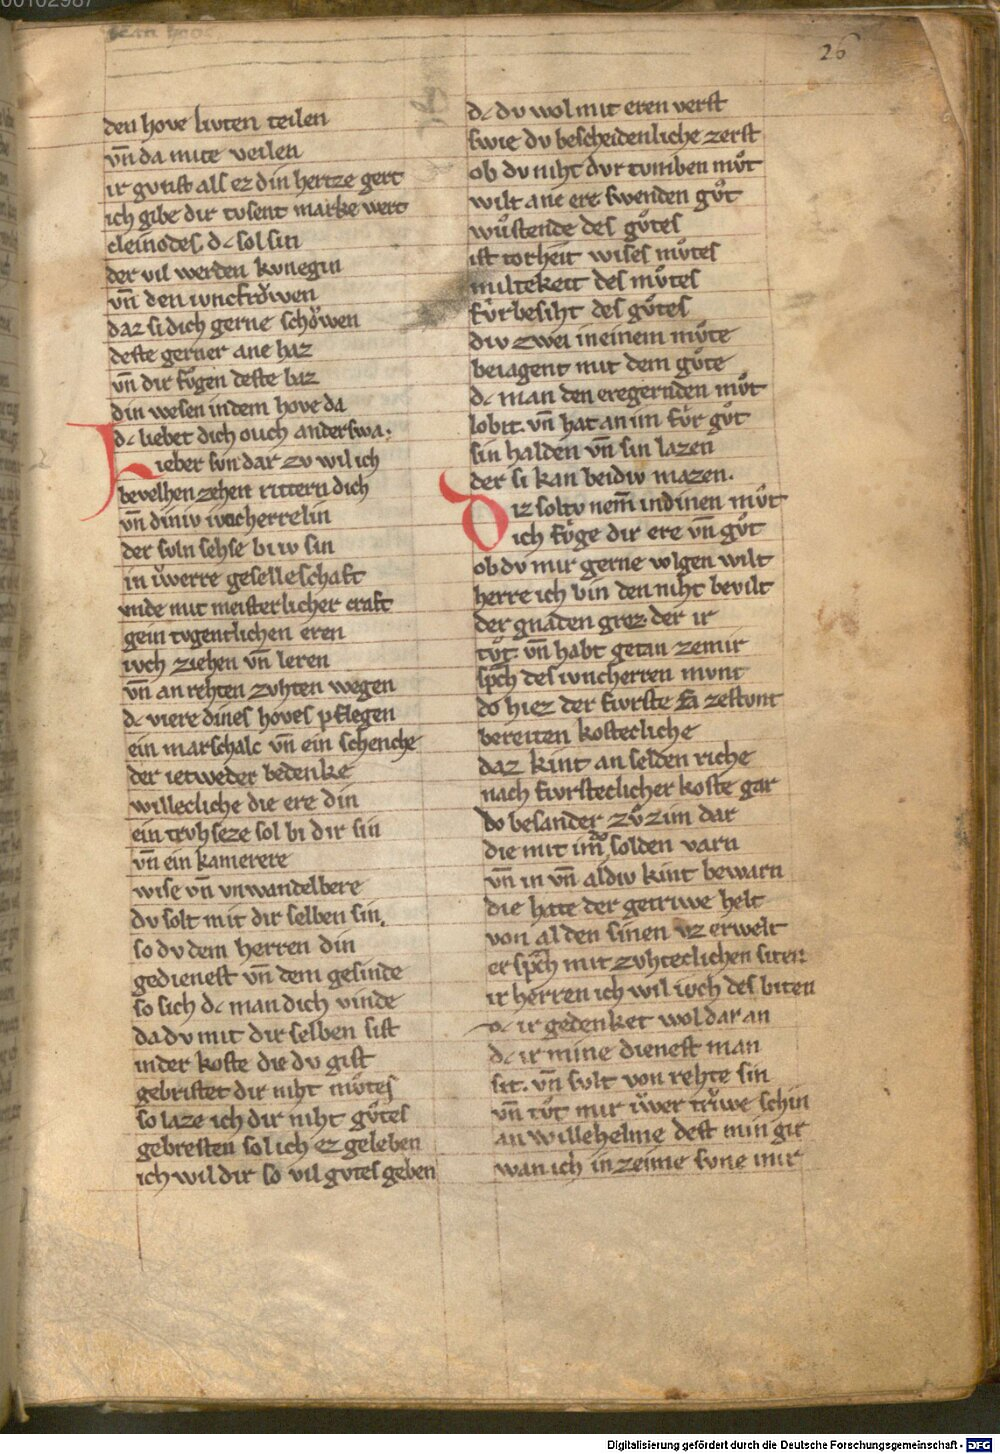 26
den hove luten teilen
vn̄ da mite veilen
ir gunst als ez din hertze gert
ich gibe dir tusent marke wert
cleinodes. dc sol sin
der vil werden kvnegin
vn̄ den iuncfrowen
daz si dich gerne schowen
deste gerner ane haz
vn̄ dir fuͦgen deste baz
din wesen in dem hove da
dc liebet dich ouch anderswa.
Lieber svn dar zv wil ich
bevelhen zehen rittern dich
vn̄ diniv ivncherrelin
der svln sehse bi iv sin
in iwerre geselleschaft
vnde mit meisterlicher craft
gein tvgentlichen eren
ivch ziehen vn̄ leren
vn̄ an rehten zvhten wegen
dc viere dines hoves pflegen
ein marschalc vn̄ ein schenche
der ietweder bedenke
willecliche die ere din
ein trvhseze sol bi dir sin
vn̄ ein kamerere
wise vn̄ vnwandelbere
dv solt mit dir selben sin.
so dv dem herren din
gedienest vn̄ dem gesinde
so sich dc man dich vinde
da dv mit dir selben sist
in der koste die dv gist
gebristet dir niht muͦtes
so laze ich dir niht guͦtes
gebresten sol ich ez geleben
ich wil dir so vil gvtes geben
dc dv wol mit eren verst
swie dv bescheidenliche zerst
ob dv niht dvr tvmben muͦt
wilt ane ere swenden guͦt
wuͦstende des guͦtes
ist torheit wises muͦtes
miltekeit des muͦtes
fuͦrbesiht des guͦtes
div zwei in einem muͦte
beiagent mit dem guͦte
dc man den eregernden muͦt
lobit. vn̄ hat an im fuͦr guͦt
sin halden vn̄ sin lazen
der si kan beidiv mazen.
Diz soltv nem̄ in dinen muͦt
ich fuͦge dir ere vn̄ guͦt
ob dv mir gerne volgen wilt
herre ich bin den niht bevilt
der gnaden groz der ir
tuͦt vn̄ habt getan ze mir
sp̄ch des ivncherren mvnt
do hiez der fvrste sa zestvnt
bereiten kostecliche
daz kint an selden riche
nach fvrsteclicher koste gar
do besander zuͦ zim dar
die mit im do solden varn
vn̄ in vn̄ aldiv kint bewarn
die hate der getriwe helt
von al den sinen vz erwelt
er sp̄ch mit zvhteclichen siten
ir herren ich wil ivch des biten
dc ir gedenket wol dar an
dc ir mine dienest man
sit. vn̄ svlt von rehte sin
vn̄ tuͦt mir iwer triwe schin
an willehelme dest min gir
wan ich in ze ime svne mir
Digitalisierung gefördert durch die Deutsche Forschungsgemeinschaft - DFG